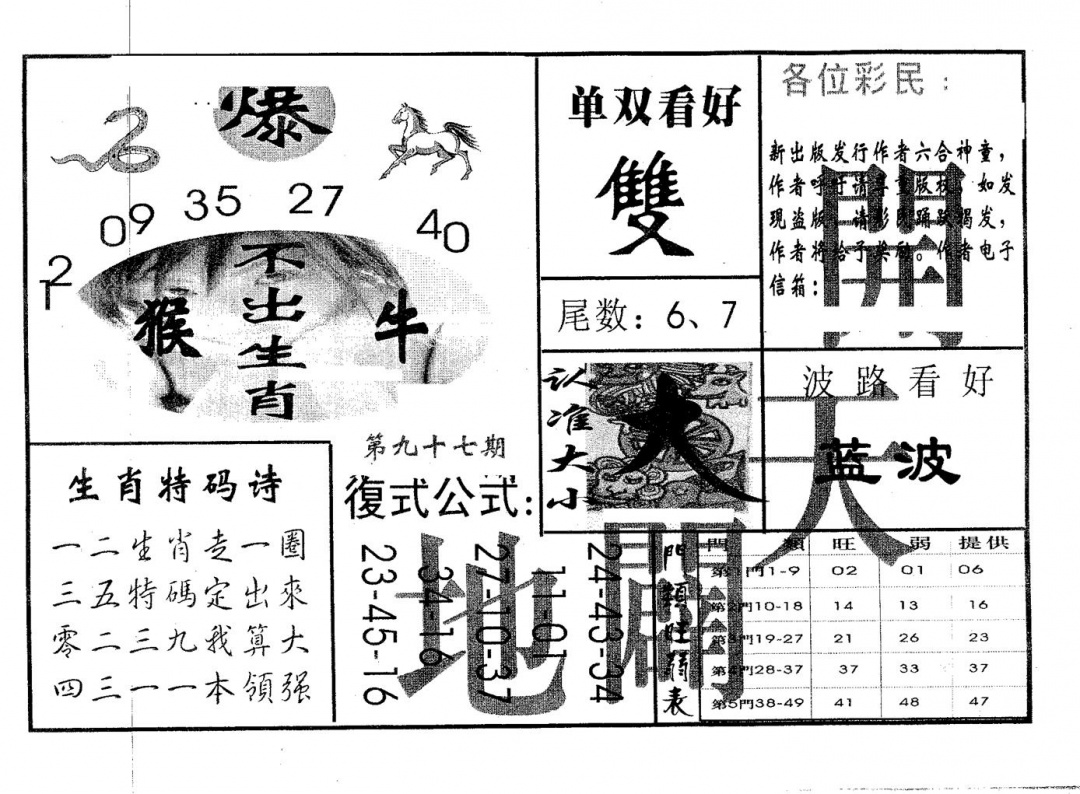 爆
09 35 27 40
12
不出生肖
猴
牛
单双看好
雙
尾数：6、7
各位彩民：
新出版发行作者六合神童，
作者呼吁请尊重版权。如发
现盗版，请彩民踊跃揭发，
作者将给予奖励。作者电子
信箱：
開
认准大小
大
波路看好
蓝波
天
生肖特码诗
一二生肖走一圈
三五特碼定出來
零二三九我算大
四三一一本領强
第九十七期
復式公式：
24-43-34
11-01
27-10-37
34-16
23-45-16
地
闢
門類旺弱表
門 類 旺 弱 提供
第1門1-9 02 01 06
第2門10-18 14 13 16
第3門19-27 21 26 23
第4門28-37 37 33 37
第5門38-49 41 48 47